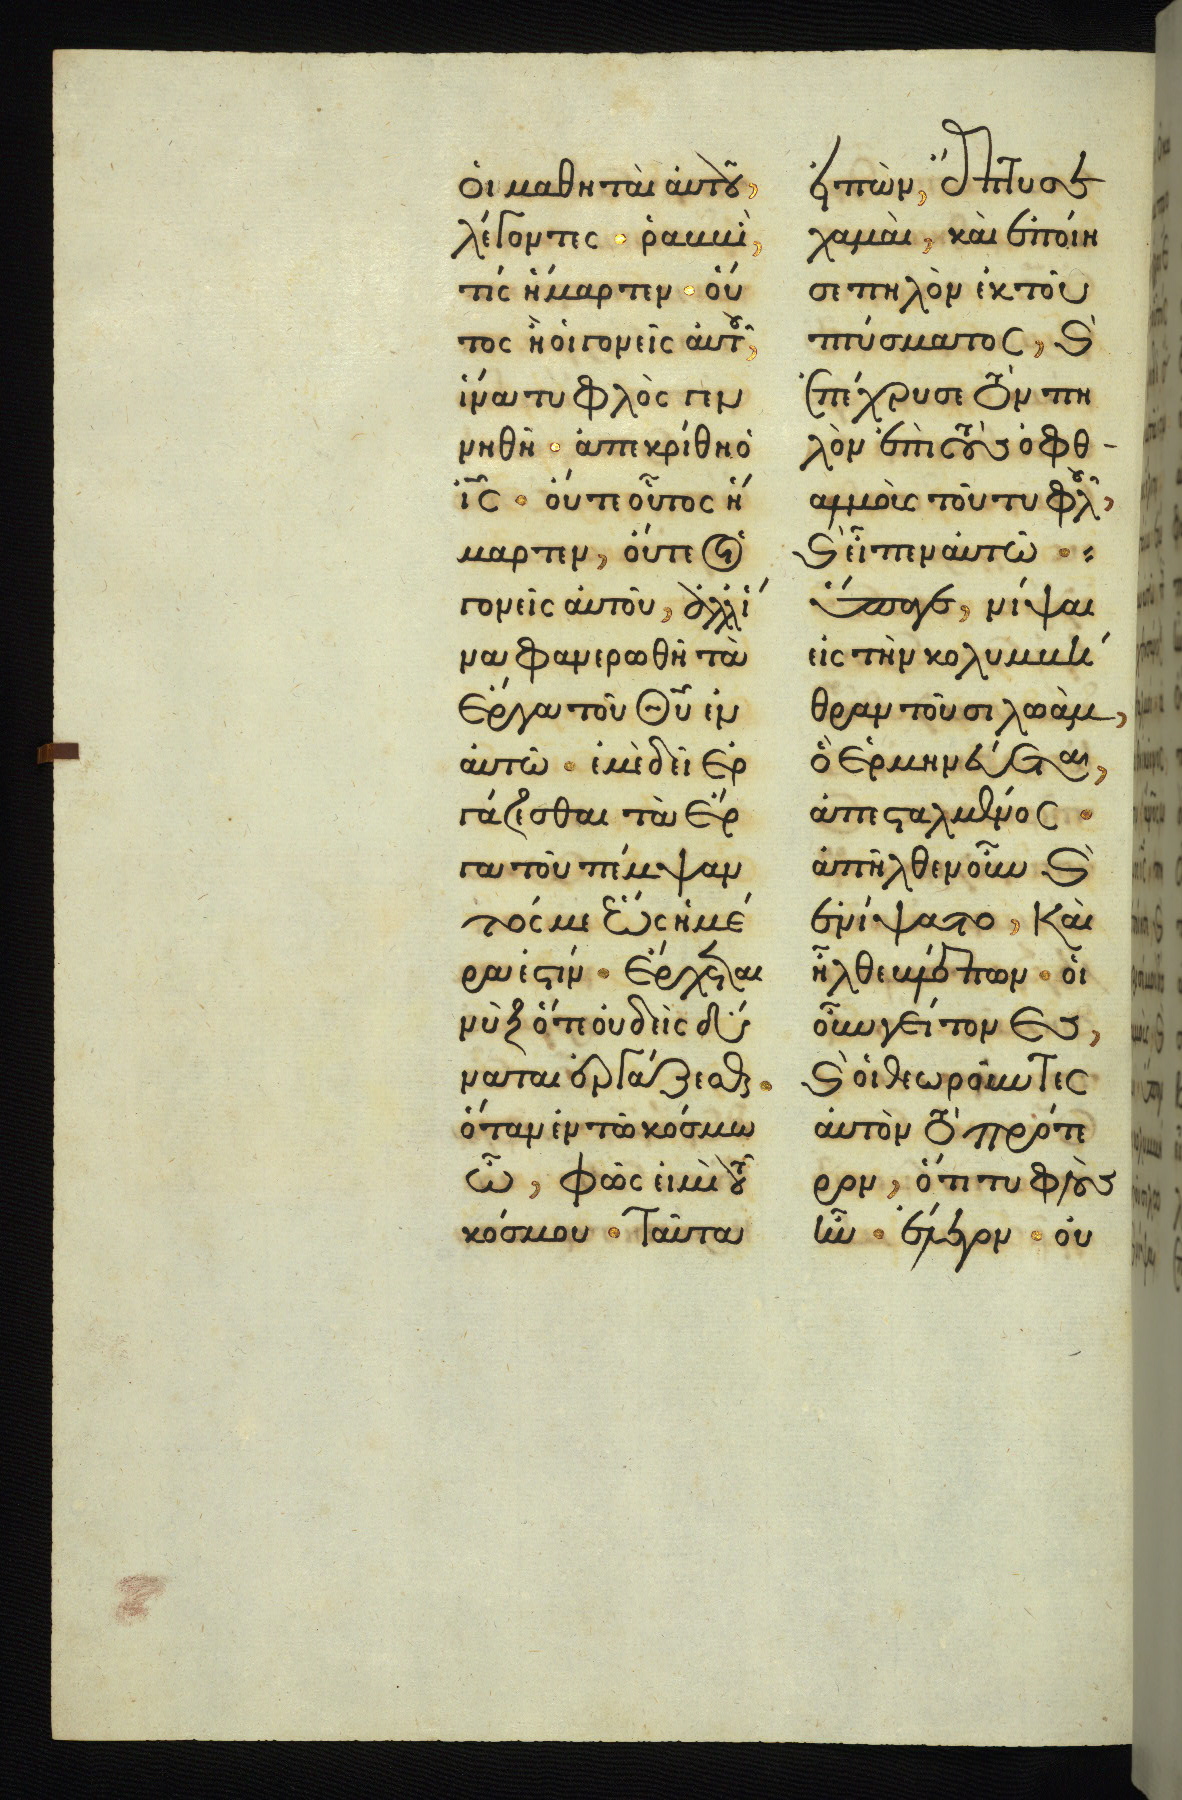 ὁι μαθηταὶ ἀυτοῦ,
λέγοντες · ῥαββὶ,
τίς ἥμαρτεν · ὁύ
τος ἢ ὁι γονεῖς ἀυτοῦ,
ἵνα τυφλὸς γεν
νηθῆ · ἀπεκρίθη ὁ
ι̅ς̅ · ὀύτε οὗτος ἥ
μαρτεν, ὀύτε οἱ
γονεῖς ἀυτοῦ, ἀλλ' ἵ
να φανερωθῆ τὰ
ἔργα τοῦ θ̅υ̅ ἐν
ἀυτῶ · ἐμὲ δεῖ ἐρ
γάζεσθαι τὰ ἔρ
γα τοῦ πέμψαν
τός με ἕως ἡμέ
ρα ἐστίν · ἔρχεται
νὺξ ὅτε ὀυδεὶς δύ
ναται ἐργάζεσθαι ·
ὅταν ἐν τῶ κόσμω
ὦ, φῶς ἐιμὶ τοῦ
κόσμου · Ταῦτα
ἐιπὼν, ἔπτυσε
χαμὰι, καὶ ἐποίη
σε πηλὸν ἐκ τοῦ
πτύσματος, καὶ
ἐπέχρυσε τὸν πη
λὸν ἐπὶ τοὺς ὀφθ-
αλμοὺς τοῦ τυφλοῦ,
καὶ εἶπεν ἀυτῶ ·
ὕπαγε, νίψαι
εἰς τὴν κολυμβή
θραν τοῦ σιλωὰμ,
ὃ ἑρμηνεύεται,
ἀπεσταλμένος ·
ἀπῆλθεν οὖν καὶ
ἐνίψατο, Καὶ
ἦλθε βλέπων · οἱ
οὖν γείτονες,
καὶ ὁι θεωροῦντες
ἀυτὸν τὸ πρότε
ρον, ὅτι τυφλὸς
ἦν · ἔλεγον · ὀυ